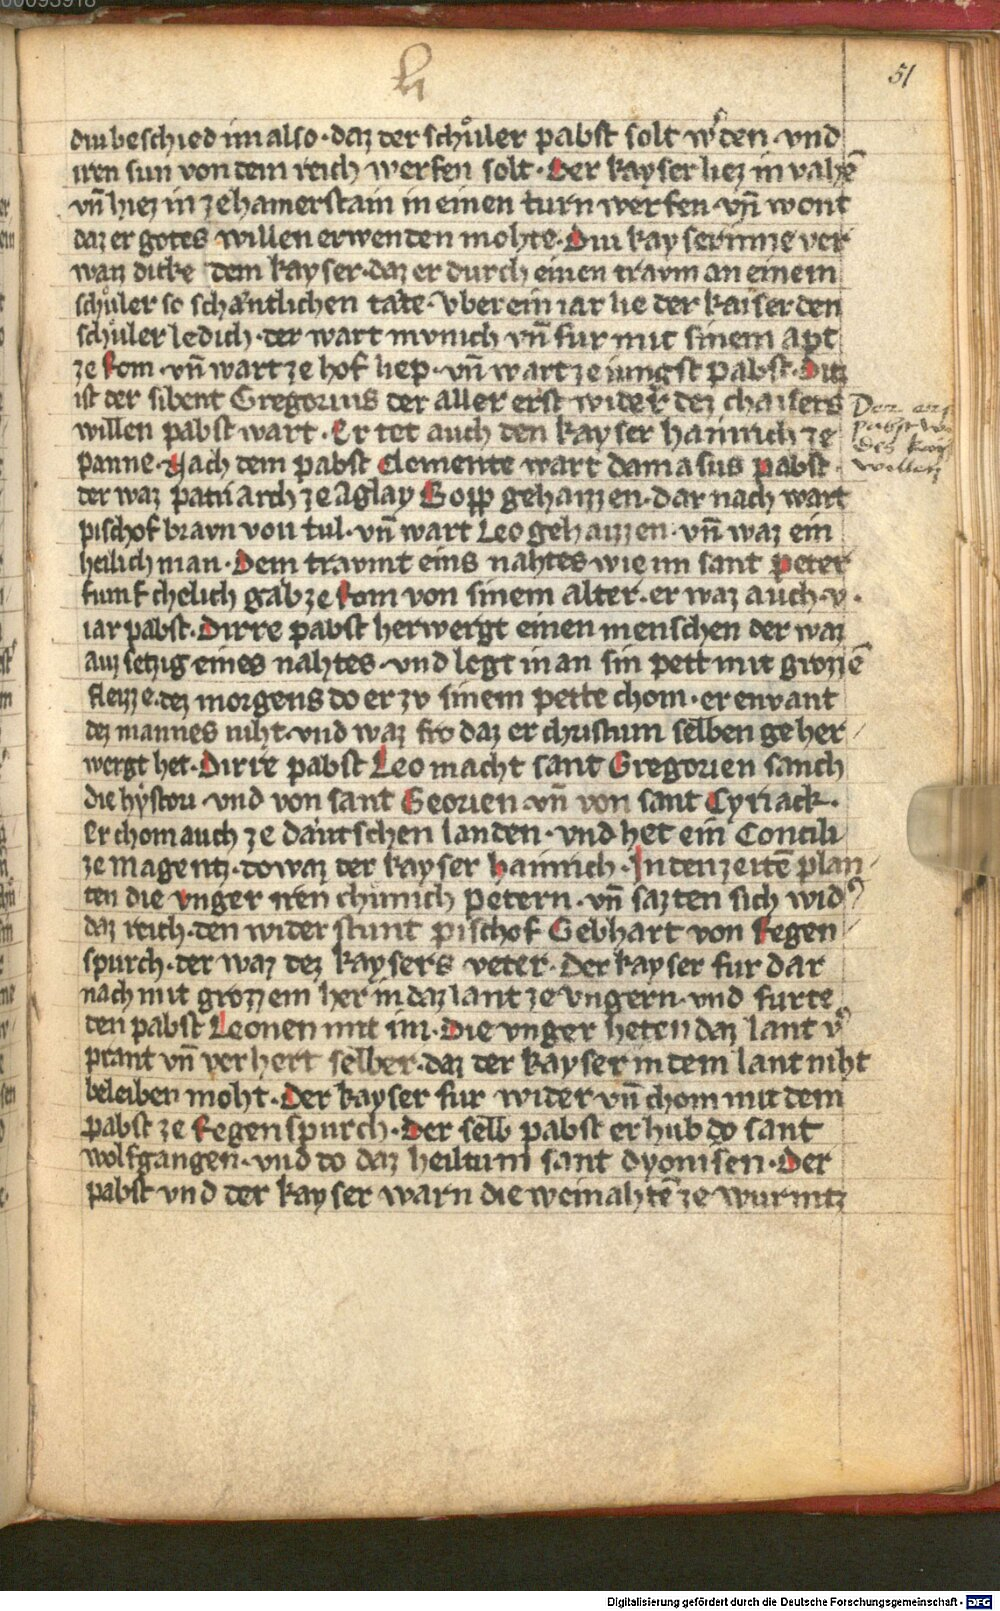 51
diu beschied im also · daz der schůler pabst solt wˢden · vnd
iren sun von dem reich werfen solt · Der kayser liez in vahē
vn̄ hiez in ze hamerstain in einen turn werfen · vn̄ wont
daz er gotes willen erwenden mohte · Diu kayserinne ver
waiz dicke dem kayser · daz er durch einen travm an einem
schůler so schantlichen tate · Vber ein iar lie der kaiser den
schůler ledich · der wart mvnich vn̄ fur mit sinem apt
ze Rom · vn̄ wart ze hof liep · vn̄ wart ze iungst pabst · Ditz
ist der sibent Gregorius der aller erst wider dez chaisers
willen pabst wart · Er tet auch den kayser hainrich ze
panne · Nach dem pabst Clemente wart damasus pabst ·
der waz patriarch ze aglay Bopp gehaizzen · dar nach wart
pischof bravn von tul · vn̄ wart Leo gehaizzen · vn̄ waz ein
heilich man · Dem travmt eins nahtes wie im sant peter
fumf chelich gab ze Rom von sinem alter · er waz auch · v ·
iar pabst · Dirre pabst herwergt einen menschen der waz
auz setzig eines nahtes · vnd legt in an sin pett mit grozzē
fleizze · dez morgens do er zv sinem pette chom · er envant
dez mannes niht · vnd waz fro daz er christum selben geher
wergt het · Dirre pabst Leo macht sant Gregorien sanch
die hystori · vnd von sant Georien · vn̄ von sant Cyriack ·
Er chom auch ze dautschen landen · vnd het ein Concili
ze magentz · do waz der kayser hainrich · In den zeitē plan
ten die vnger iren chůnich Petern · vn̄ sazten sich widˢ
daz reich · den wider stunt pischof Gebhart von Regen
spurch · der waz dez kaysers veter · Der kayser fur dar
nach mit grozzem her in daz lant ze vngern · vnd furte
den pabst Leonen mit im · Die vnger heten daz lant vˢ
prant vn̄ verhert selber · daz der kayser in dem lant niht
beleiben moht · Der kayser fur wider vn̄ chom mit dem
pabst ze Regenspurch · Der selb pabst erhub do sant
wolfgangen · vnd do daz heiltum sant dyonisen · Der
pabst vnd der kayser warn die weinahtē ze wurmtz
pabst
des kaiss
willen
Digitalisierung gefördert durch die Deutsche Forschungsgemeinschaft - DFG